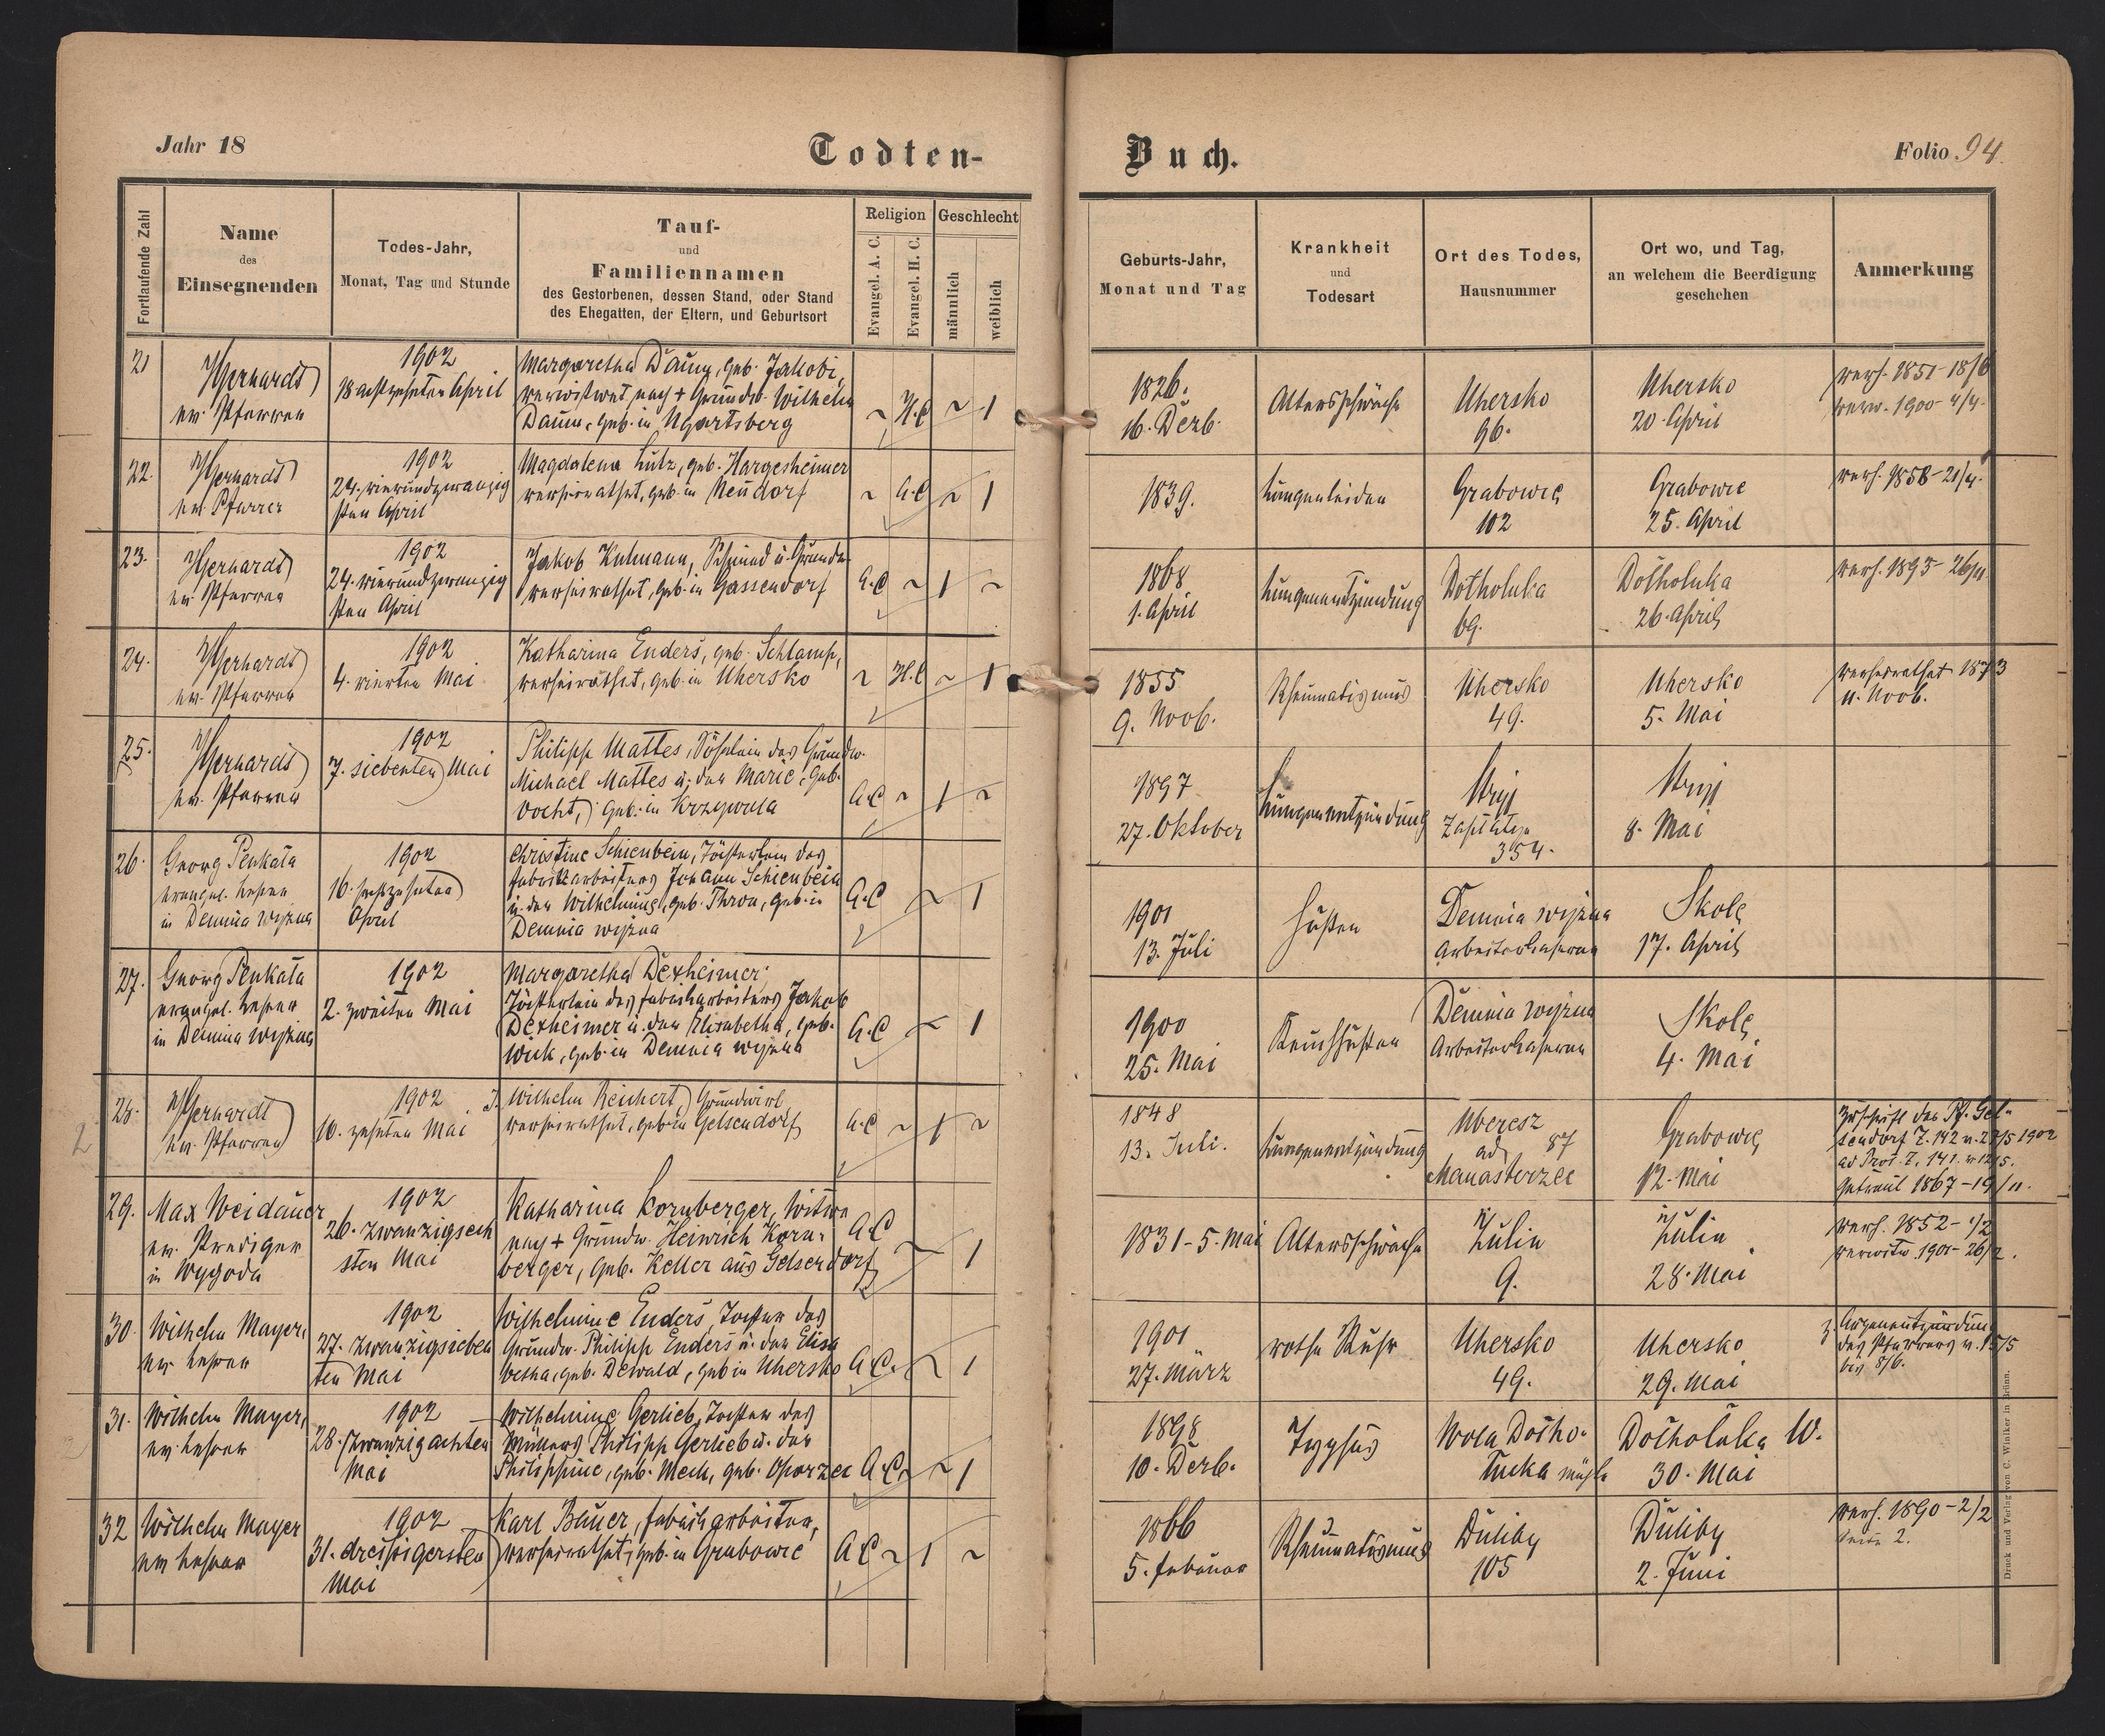 Jahr 18
Todten-
Buch.
Folio 94.
Fortlaufende Zahl
Name
des
Einsegnenden
Todes-Jahr,
Monat, Tag und Stunde
Tauf-
und
Familiennamen
des Gestorbenen, dessen Stand, oder Stand
des Ehegatten, der Eltern, und Geburtsort
Religion
Evangel. A. C.
Evangel. H. C.
Geschlecht
männlich
weiblich
Geburts-Jahr,
Monat und Tag
Krankheit
und
Todesart
Ort des Todes,
Hausnummer
Ort wo, und Tag,
an welchem die Beerdigung
geschehen
Anmerkung
21
ev. Pfarrer
1902
18 achtzehnten April
Margaretha Daum, geb. Jakobi,
verwitwet nach + Grundw. Wilhelm
Daum, geb. in Ugartsberg
~ H.C ~ 1
1826.
16. Dezb.
Altersschwäche
Uhersko
96.
Uhersko
20. April
verh. 1851 - 18/6
verw. 1900 - 4/4.
22.
ev. Pfarrer
1902
24. vierundzwanzig
sten April
Magdalena Lutz, geb. Hargesheimer
verheirathet, geb. in Neudorf
~ A.C ~ 1
1839.
Lungenleiden
Grabowce
102
Grabowce
25. April
verh. 1858 - 21/4.
23.
ev. Pfarrer
1902
24. vierundzwanzig
sten April
Jakob Kulmann, Schmied u. Grundw.
verheirathet, geb. in Gassendorf
A.C ~ 1 ~
1868
1. April
Lungenentzündung
Dołholuka
69.
Dołholuka
26. April
verh. 1893 - 26/11
24.
ev. Pfarrer
1902
4. vierten Mai
Katharina Enders, geb. Schlamp,
verheirathet, geb. in Uhersko
~ H.C ~ 1
1855
9. Novb.
Rheumatismus
Uhersko
49.
Uhersko
5. Mai
verheirathet 1873
11. Novb.
25.
ev. Pfarrer
1902
7. siebenten Mai
Philipp Mattes, Söhnlein des Grundw.
Michael Mattes u. der Marie, geb.
Vocht, geb. in Krzywula
A.C ~ 1 ~
1897
27. Oktober
Lungenentzündung
Stryj
354.
Stryj
8. Mai
26.
Georg Penkala
evangel. Lehrer
in Demnia wyżna
1902
16. sechzehnten
April
Christine Schienbein, Töchterlein des
Fabrikarbeiters Johann Schienbein
u. der Wilhelmine, geb. Thron, geb. in
Demnia wyżna
A.C ~ 1
1901
13. Juli
Husten
Demnia wyżna
Arbeiterkaserne
Skole
17. April
27.
Georg Penkala
evangel. Lehrer
in Demnia wyżna
1902
2. zweiten Mai
Margaretha Dexheimer,
Töchterlein des Fabrikarbeiters Jakob
Dexheimer u. der Elisabetha, geb.
Wick, geb. in Demnia wyżna
A.C ~ 1
1900
25. Mai
Keuchhusten
Demnia wyżna
Arbeiterkaserne
Skole
4. Mai
28.
ev. Pfarrer
1902
10. zehnten Mai
J. Wilhelm Reichert, Grundwirt
verheirathet, geb. in Gelsendorf
A.C ~ 1 ~
1848
13. Juli.
Lungenentzündung
87
ad
Manasterzec
Grabowce
12. Mai
Zuschrift des Pf. Gel-
sendorf Z. 142 v. 27/5 1902
ad Prot. Z. 141 v. 12/5.
Getraut 1867 - 19/11.
29.
Max Weidauer
ev. Prediger
in Wygoda
1902
26. zwanzigsech
sten Mai
Katharina Kornberger, Witwe
nach + Grundw. Heinrich Korn-
berger, geb. Keller aus Gelsendorf
A.C ~ 1
1831 - 5. Mai
Altersschwäche
Żulin
9.
Żulin
28. Mai
verh. 1852 - 1/2
verwitw. 1901 - 26/2.
30.
Wilhelm Mayer,
ev. Lehrer
1902
27. zwanzigsieben
ten Mai
Wilhelmine Enders, Tochter des
Grundw. Philipp Enders u. der Elisa
betha, geb. Dewald, geb in Uhersko
A.C. ~ 1
1901
27. März
rothe Ruhr
Uhersko
49.
Uhersko
29. Mai
z. Augenentzündung
des Pfarrers v. 15/5
bis 8/6.
31.
Wilhelm Mayer,
ev. Lehrer
1902
28. zwanzigachten
Mai
Wilhelmine Gerlieb, Tochter des
Müllers Philipp Gerlieb u. der
Philippine, geb. Mech, geb. Oparzec
A.C. ~ 1
1898
10. Dezb.
Typhus
Wola Dołho-
łucka mühle
Dołholuka W.
30. Mai
32
Wilhelm Mayer
ev. Lehrer
1902
31. dreissigersten
Mai
Karl Bauer, Fabrikarbeiter,
verheirathet, geb. in Grabowce
A.C ~ 1 ~
1866
5. Februar
Rheumatismus
Duliby
105
Duliby
2. Juni
verh. 1890 - 2/2
Druck und Verlag von C. Winiker in Brünn.